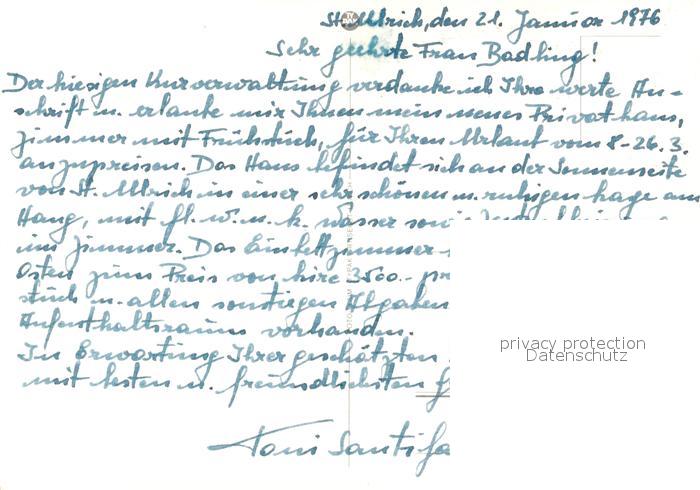 St. Ulrich, den 21. Januar 1976
Sehr geehrte Frau Badling!
Der hiesigen Kurverwaltung verdanke ich Ihre werte An-
schrift u. erlaube mir Ihnen mein neues Privathaus,
Zimmer mit Frühstück, für Ihren Urlaub vom 8-26.3.
anzupreisen. Das Haus befindet sich an der Sonnenseite
von St. Ulrich in einer sehr schönen u. ruhigen Lage am
Hang, mit fl. w. u. k. Wasser sowie
im Zimmer. Das Einbettzimmer
Osten zum Preis von Lire 3500.- pr
stück u. allen sonstigen Abgaben
Aufenthaltsraum vorhanden.
In Erwartung Ihrer geschätzten
mit besten u. freundlichsten G
Toni Santifa
privacy protection
Datenschutz